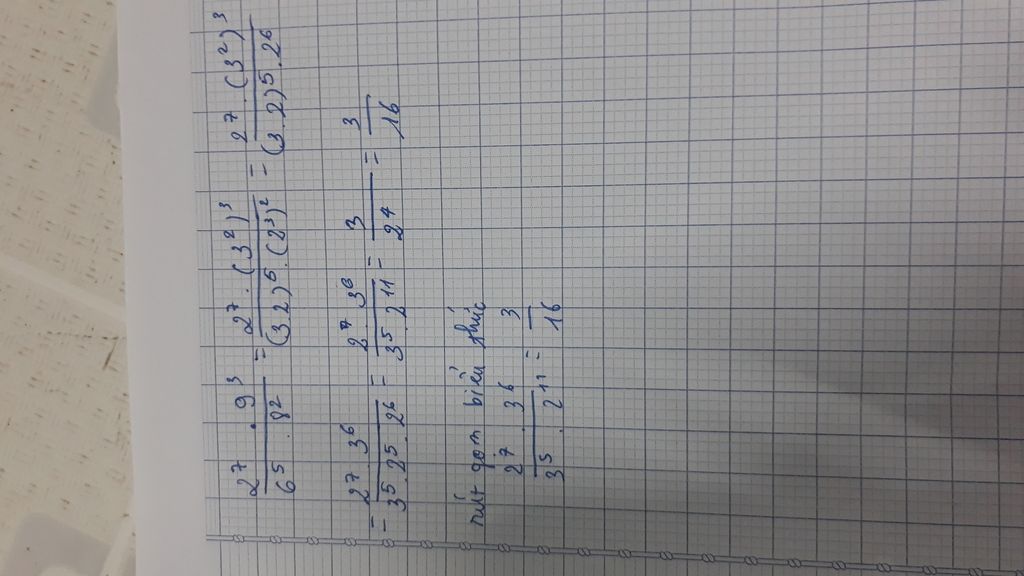 2⁷ . 9³ / 6⁵ . 8² = 2⁷ . (3²)³ / (3.2)⁵ . (2³)² = 2⁷ . (3²)³ / (3.2)⁵ . 2⁶
= 2⁷ . 3⁶ / 3⁵ . 2⁵ . 2⁶ = 2⁷ . 3⁶ / 3⁵ . 2¹¹ = 3 / 2⁴ = 3 / 16
rút gọn biểu thức
2⁷ . 3⁶ / 3⁵ . 2¹¹ = 3 / 16